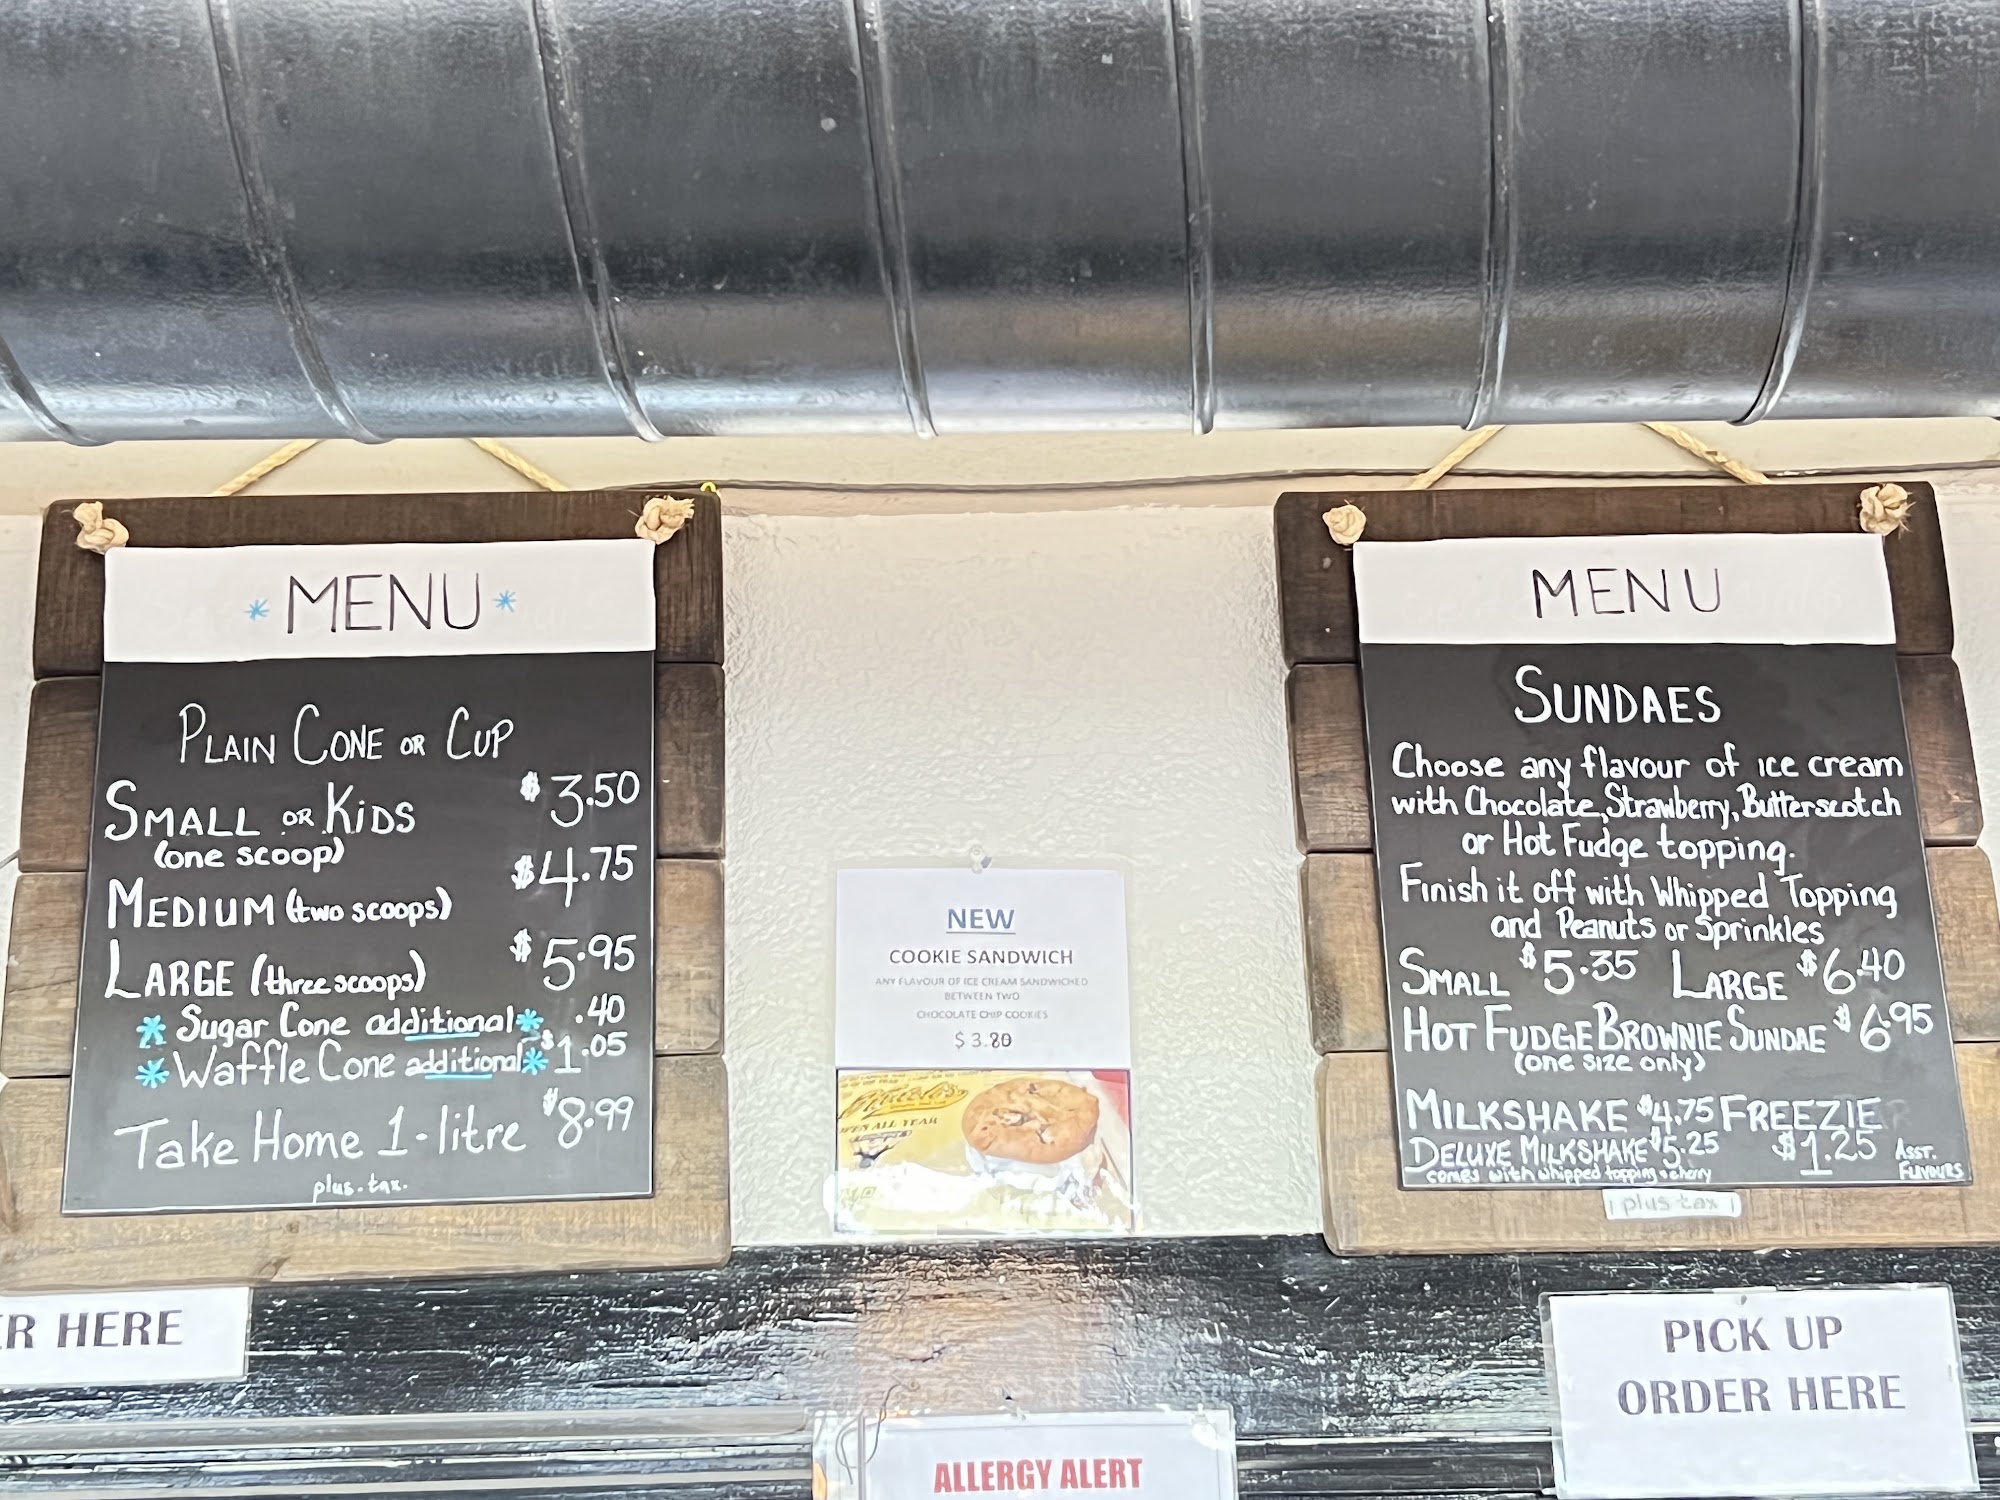 *MENU*
PLAIN CONE OR CUP
SMALL OR KIDS $3.50
(one scoop)
MEDIUM (two scoops) $4.75
LARGE (three scoops) $5.95
* Sugar Cone additional * .40
* Waffle Cone additional * $1.05
Take Home 1-litre $8.99
plus.tax.
NEW
COOKIE SANDWICH
ANY FLAVOUR OF ICE CREAM SANDWICHED
BETWEEN TWO
CHOCOLATE CHIP COOKIES
$ 3.80
OPEN ALL YEAR
MENU
SUNDAES
Choose any flavour of ice cream
with Chocolate, Strawberry, Butterscotch
or Hot Fudge topping.
Finish it off with Whipped Topping
and Peanuts or Sprinkles
SMALL $5.35 LARGE $6.40
HOT FUDGE BROWNIE SUNDAE $6.95
(one size only)
MILKSHAKE $4.75 FREEZIE
DELUXE MILKSHAKE $5.25 $1.25 ASST.
comes with whipped topping & cherry FLAVOURS
plus tax
ER HERE
PICK UP
ORDER HERE
ALLERGY ALERT